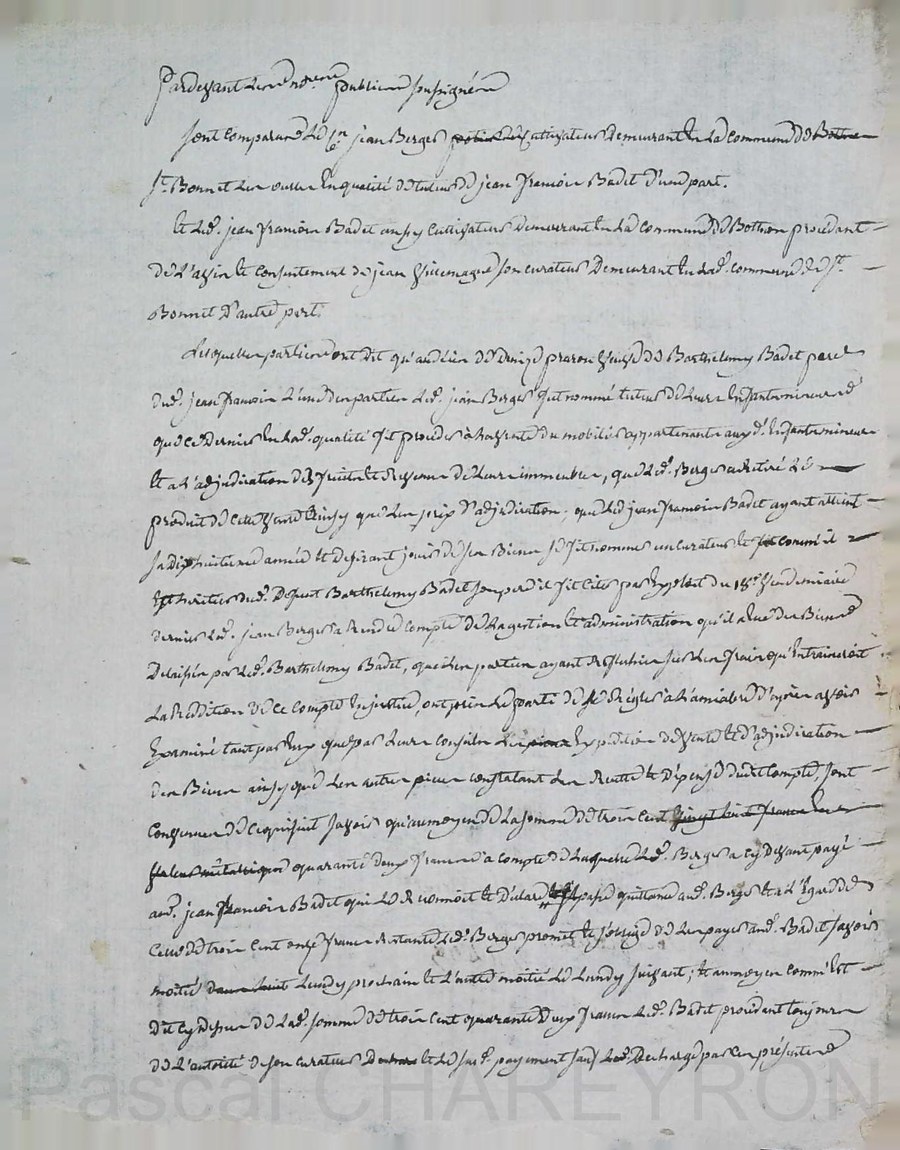 Pardevant les no.res publics soussignés
Sont comparus le C.n jean Berger cultivateur demeurant en la commune de
S.t Bonnet les oules en qualité de tuteur de jean françois Badet d'une part.
et led. jean françois Badet aussy cultivateur demeurant en la commune de Bothéon procédant
de l'avis et consentement de jean son curateur demeurant en lad. commune de S.t
Bonnet d'autre part.
Lesquelles parties ont dit qu'au décès de veuve de Barthelemy Badet pere
dud. jean françois l'une des parties led. jean Berger fut nommé tuteur de leurs enfants mineurs
que ce dernier en lad. qualité fit proceder à la vente du mobilier appartenant auxd. enfants mineurs
et à l'adjudication des fruits et revenus de leurs immeubles, que led. Berger a retiré le
produit de cette vente ainsy que les prix d'adjudication; que led jean françois Badet ayant atteint
sa dix huitieme année et desirant jouir de ses Biens se fit nommer un curateur et comme il
est heritier dud. defunt Barthelemy Badet son pere il fit citer par exploit du 18.e vendemiaire
dernier led. jean Berger a rendre compte de la gestion et administration qu'il a eue des Biens
delaissés par led. Barthelemy Badet, que les parties ayant reflechies sur les frais qu'entraineroit
la Reddition de ce compte en justice, ont pris le parti de se regler à l'amiable d'après avoir
examiné tant par eux que par leurs conseils les pieces expedition de vente et d'adjudication
des Biens ainsy que les autres pieces constatant les Recette et dépense dudit compte, sont
convenues de ce qui suit savoir qu'au moyen de la somme de trois cent vingt huit francs les
valeur métallique quarante deux francs à compte de laquelle led. Berger a cy devant payé
aud. jean françois Badet qui le Reconnoit et déclare passé quittance aud. Berger et à l'égard de
celle de trois cent onze francs restante led. Berger promet et s'oblige de les payer aud. Badet savoir
moitié dans huit Lundy prochain et l'autre moitié le Lundy suivant; et au moyen comm'est
dit cy dessus de lad. somme de trois cent quarante deux francs led. Badet procédant toujours
de l'autorité de son curateur et le sus.d payement sauf decharge par ces présentes
Pascal CHAREYRON